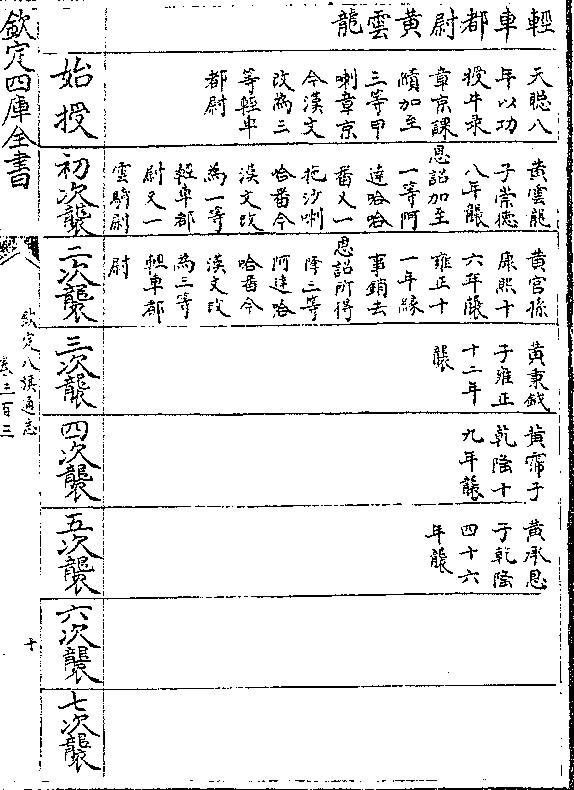 輕車都尉黄雲龍
始授
天聰八
年以功
授牛彔
章京課
績加至
三等甲
喇章京
今漢文
改為三
等輕車
都尉
初次襲
黄雲龍
子崇德
八年襲
恩詔加至
一等阿
達哈哈
番又一
拖沙喇
哈番今
漢文改
為一等
輕車都
尉又一
雲騎尉
二次襲
黄官孫
康熙十
六年襲
雍正十
一年緣
事銷去
恩詔所得
降三等
阿達哈
哈番今
漢文改
為三等
輕車都
尉
三次襲
黄秉鉞
子雍正
十二年
襲
四次襲
黄霈子
乾隆十
九年襲
五次襲
黄承恩
于乾隆
四十六
年襲
六次襲
七次襲
欽定四庫全書
欽定八旗通志
卷三百三
十